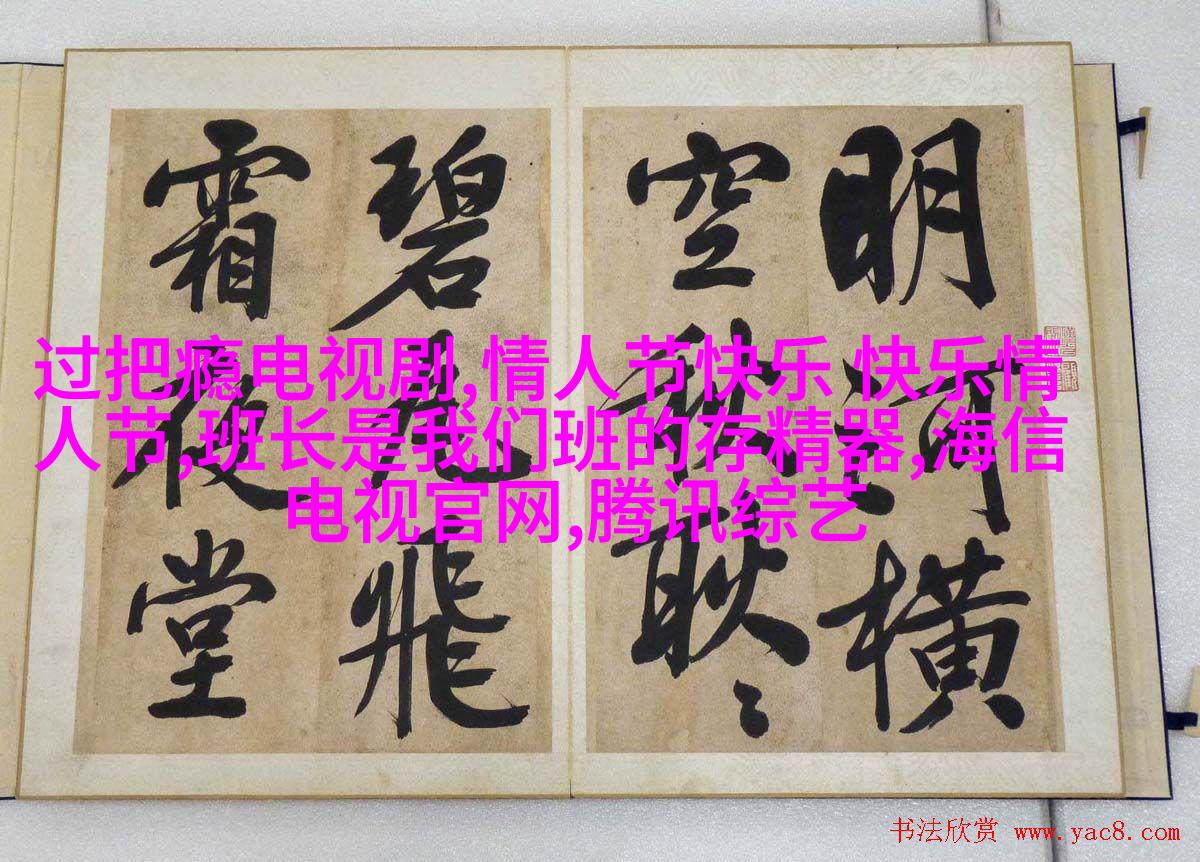 明河横
空秋耿〻
碧瓦飛
霜夜堂
过把瘾电视剧,情人节快乐 快乐情
人节,班长是我们班的存精器,海信
电视官网,腾讯综艺
书法欣赏 www.yac8.com